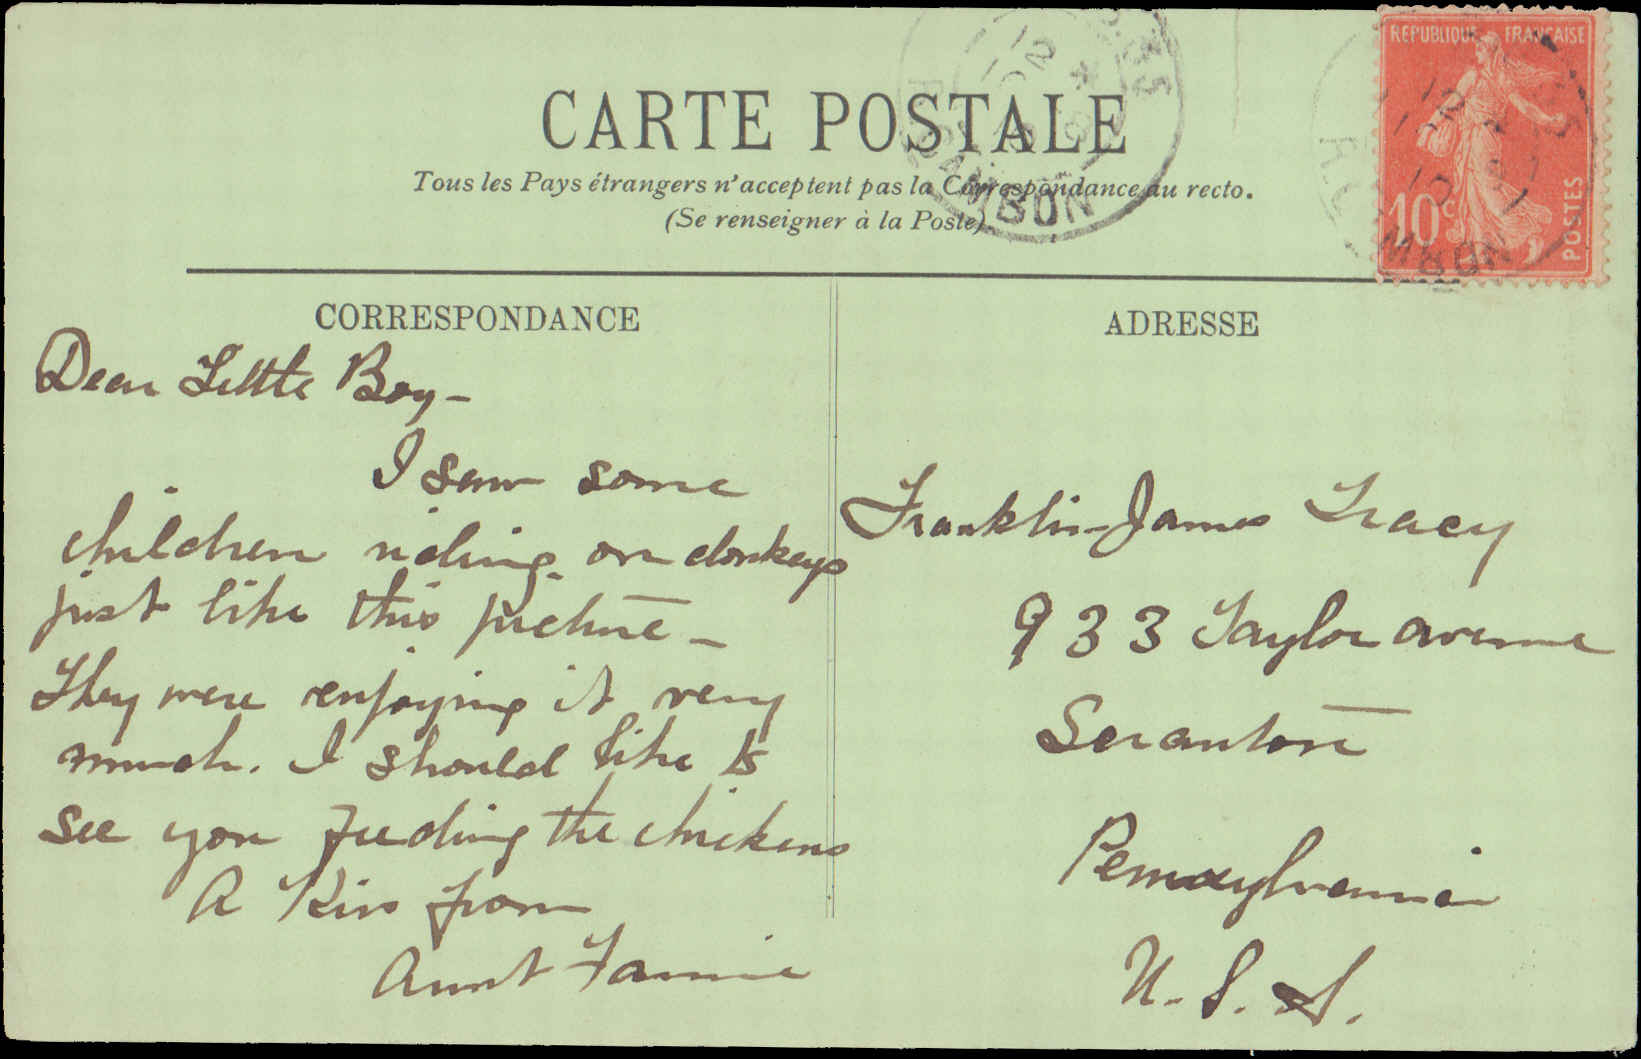 CARTE POSTALE
Tous les Pays étrangers n'acceptent pas la Correspondance au recto.
(Se renseigner à la Poste).
REPUBLIQUE FRANÇAISE
10c
POSTES
CORRESPONDANCE
Dear Little Boy-
I saw some
children riding on donkeys
just like this picture -
They were enjoying it very
much. I should like to
see you feeding the chickens
A Kiss from
Aunt Fannie
ADRESSE
Franklin James Tracy
933 Taylor avenue
Scranton
Pennsylvania
U.S.A.